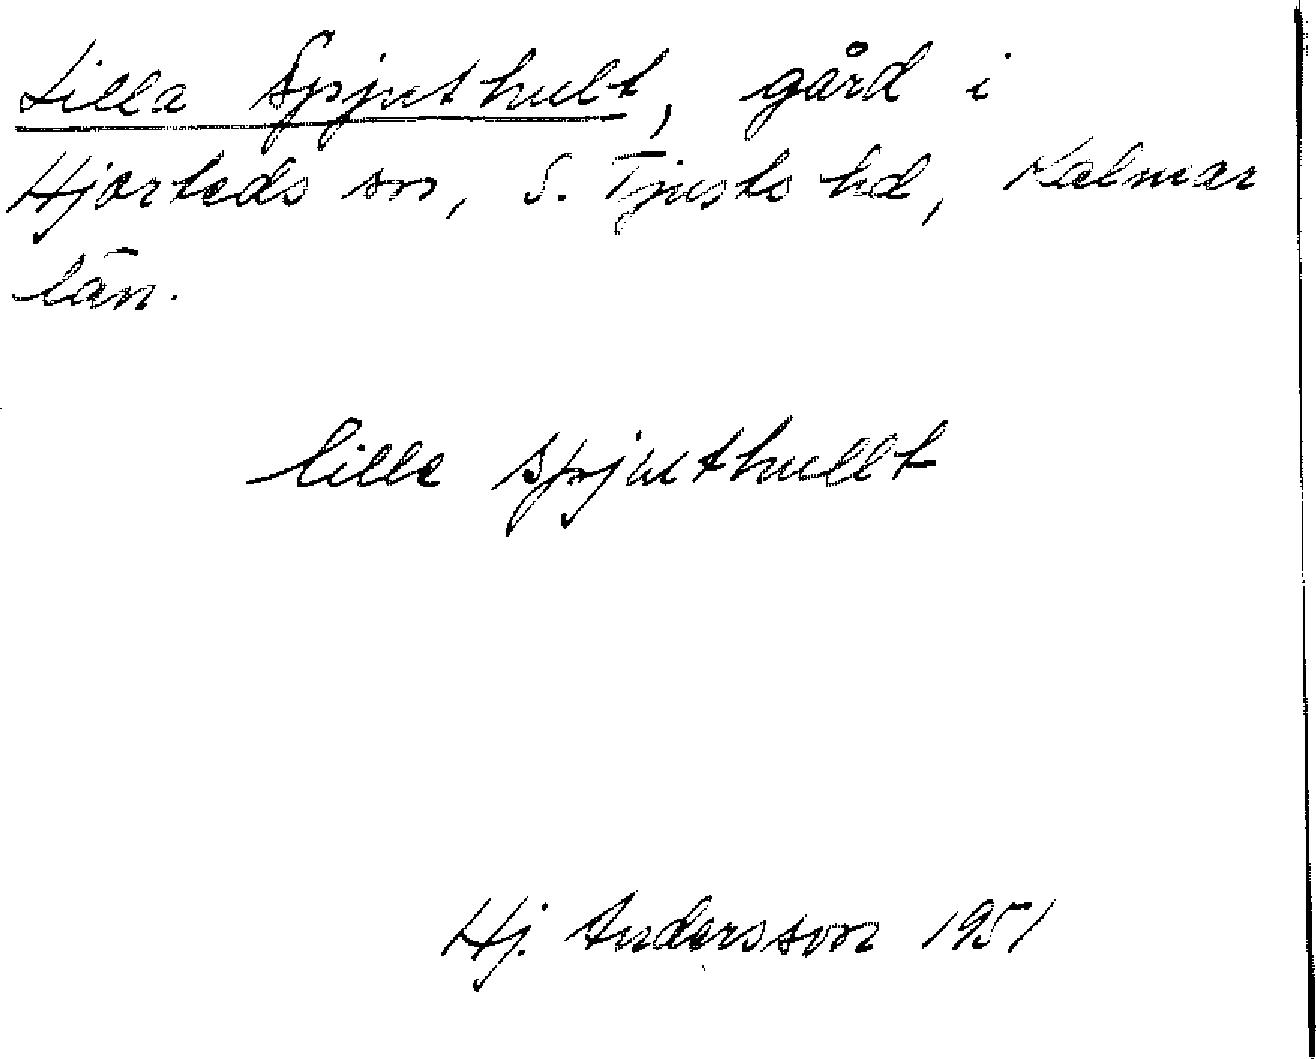 Lilla Spjuthult, gård i
Hjorteds sn, S. Tjusts hd, Kalmar
län.
lilla spjuthullt
Hj. Andersson 1951